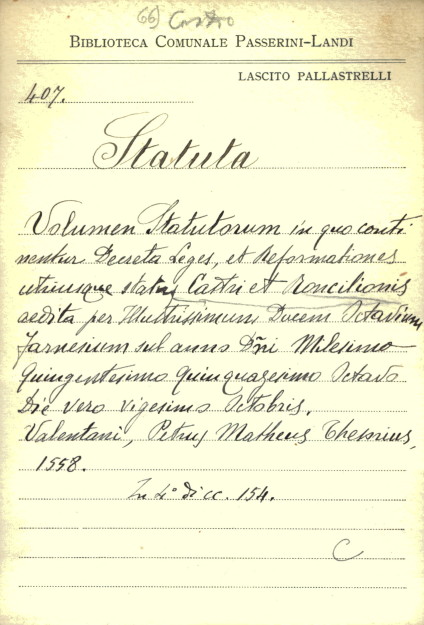 66) Castro
BIBLIOTECA COMUNALE PASSERINI-LANDI
LASCITO PALLASTRELLI
407.
Statuta
Volumen Statutorum in quo conti
nentur Decreta Leges, et Reformationes
utriusque status Castri et Roncilionis
aedita per Illustrissimum Ducem Octavium
Farnesium sub anno Dñi Milesimo
quingentesimo quinquagesimo Octavo
Die vero vigesimo Octobris.
Valentani, Petrus Matheus
1558.
In 4° di cc. 154.
C